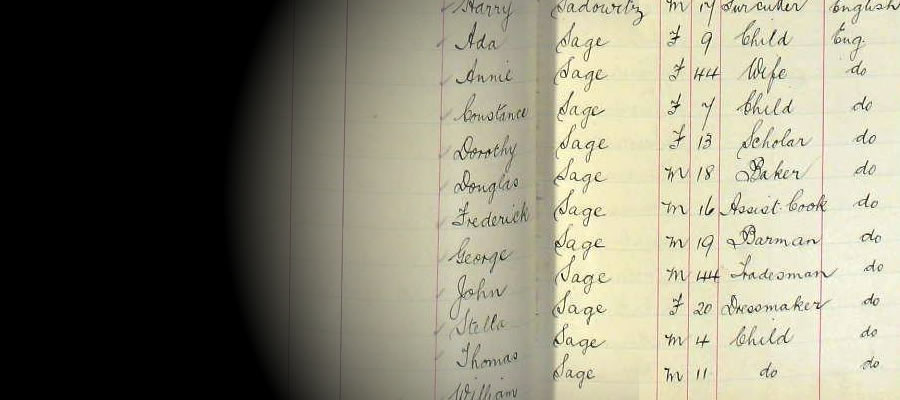 Harry Sadowitz M 17 Furcutter English
Ada Sage F 9 Child Eng.
Annie Sage F 44 Wife do
Constance Sage F 7 Child do
Dorothy Sage F 13 Scholar do
Douglas Sage M 18 Baker do
Frederick Sage M 16 Assist. Cook do
George Sage M 19 Barman do
John Sage M 44 Tradesman do
Stella Sage F 20 Dressmaker do
Thomas Sage M 4 Child do
William Sage M 11 do do